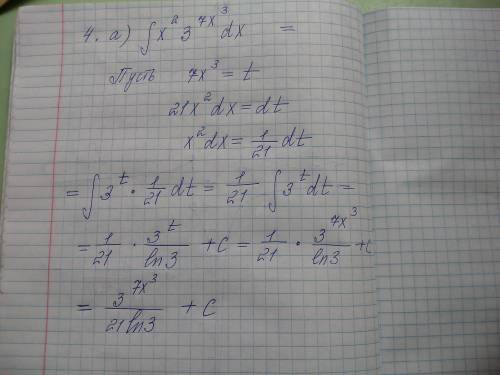 4. а) ∫x² 3^{7x³} dx =
Пусть 7x³ = t
21x² dx = dt
x² dx = 1/21 dt
= ∫3^t · 1/21 dt = 1/21 ∫3^t dt =
= 1/21 · 3^t/ln3 + C = 1/21 · 3^{7x³}/ln3 + C
= 3^{7x³}/21ln3 + C